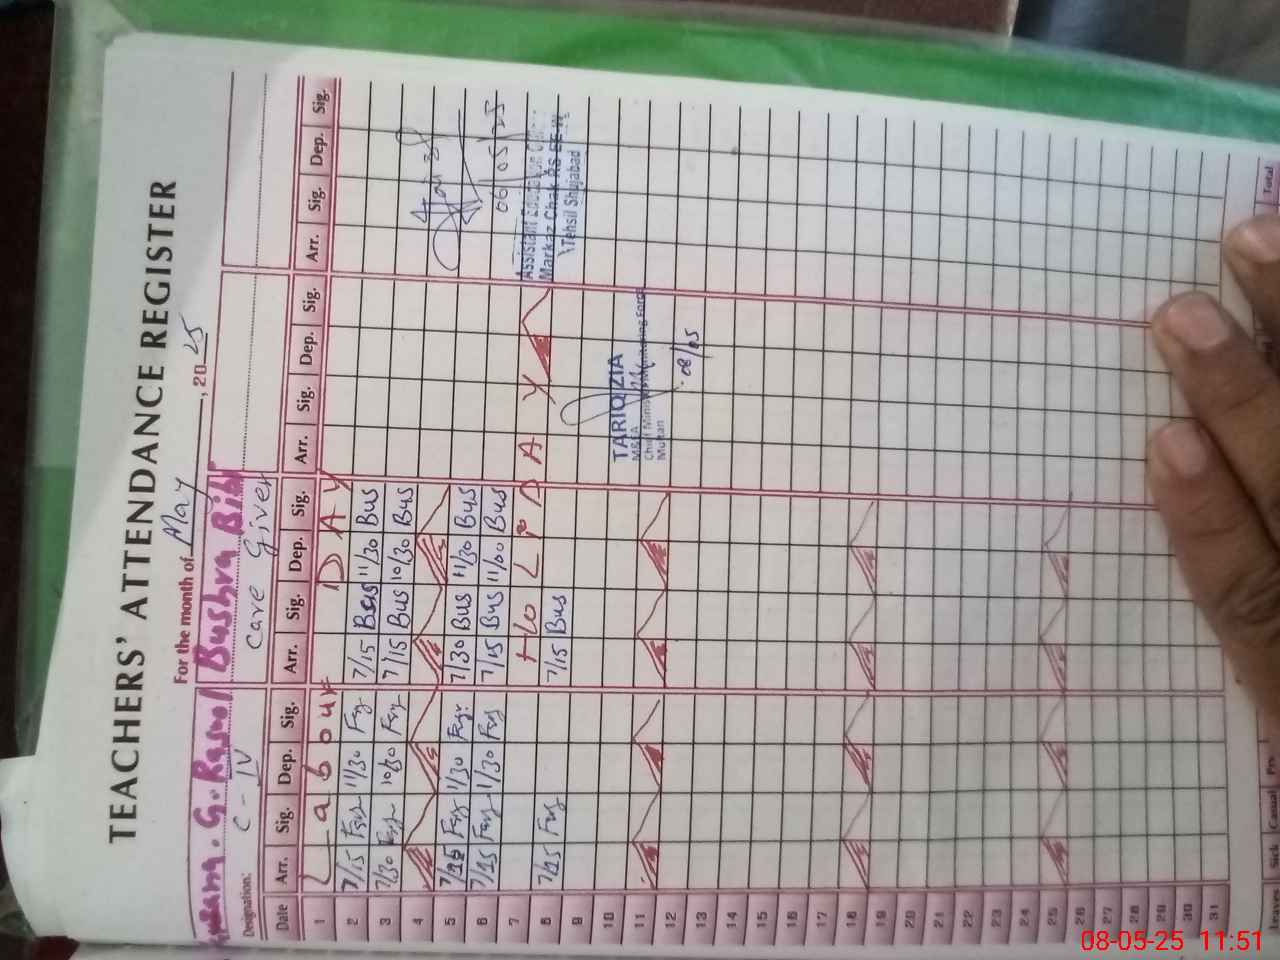 TEACHERS' ATTENDANCE REGISTER
For the month of May, 2025
G. Rasool Bushra Bibi
Designation: C - IV Care Giver
Date Arr. Sig. Dep. Sig. Arr. Sig. Dep. Sig. Arr. Sig. Dep. Sig. Arr. Sig. Dep. Sig.
1 Labour DAY
2 7/15 11/30 7/15 Bus 11/30 Bus
3 7/30 10/30 7/15 Bus 10/30 Bus
4
5 7/15 1/30 7/30 Bus 11/30 Bus
6 7/15 1/30 7/15 Bus 11/00 Bus
06/05/25
7 HoLiDAY
Assistant Education
Markaz Chak RS EE-W
Tehsil Shujabad
8 7/15 7/15 Bus
9
10
TARIQ ZIA
M&EA
Chief Minister Monitoring Force
Multan
08/05
11
12
13
14
15
16
17
18
19
20
21
22
23
24
25
26
27
28
29
30
31
Leaves Sick Casual Prv Total
08-05-25 11:51